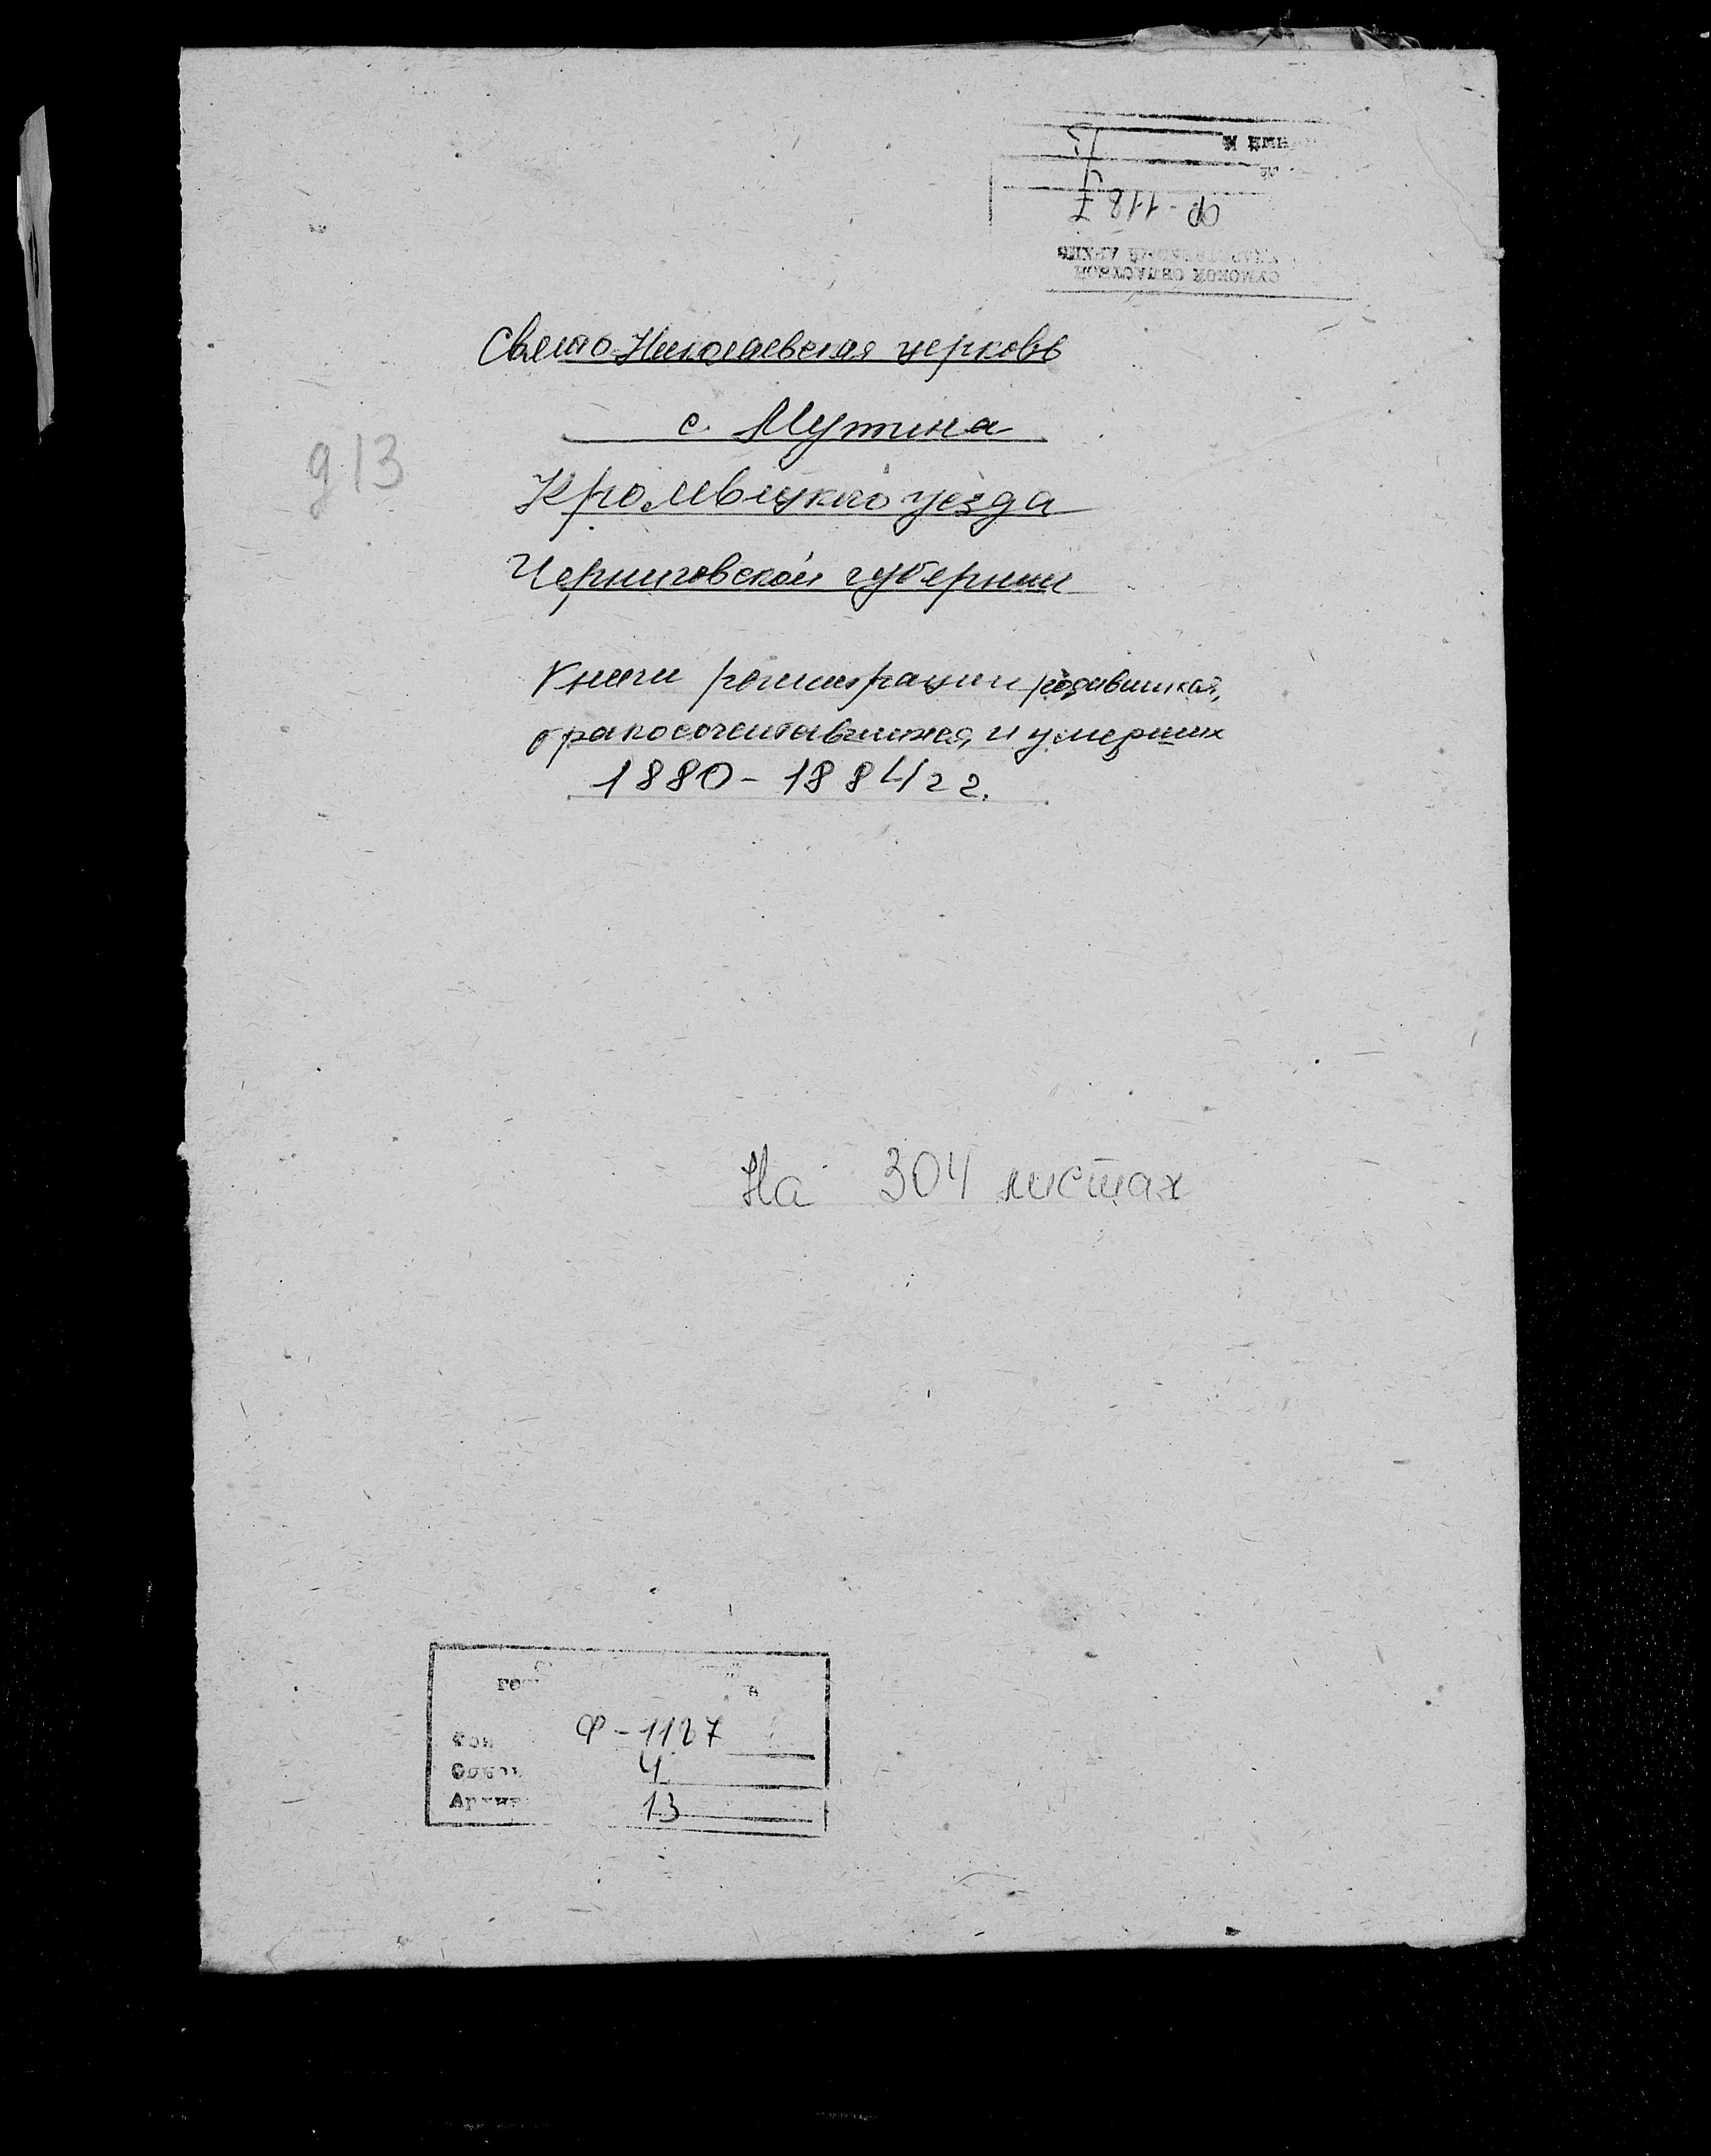 СУМСКОЙ ОБЛАСТНОЙ
Свято-Николаевская церковь
с. Мутина
д 13
Кролевецкого уезда
Черниговской губернии
Книги регистрации родившихся,
бракосочетавшихся, и умерших
1880-1884 гг.
На 304 листах
Ф-1187
4
13